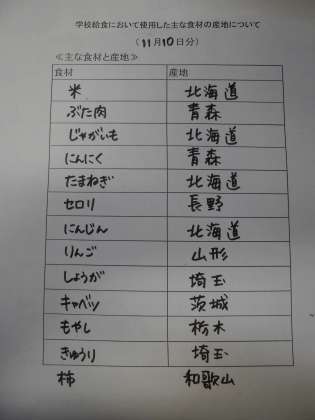 学校給食において使用した主な食材の産地について
(11月10日分)
≪主な食材と産地≫
食材 産地
米 北海道
ぶた肉 青森
じゃがいも 北海道
にんにく 青森
たまねぎ 北海道
セロリ 長野
にんじん 北海道
りんご 山形
しょうが 埼玉
キャベツ 茨城
もやし 栃木
きゅうり 埼玉
柿 和歌山